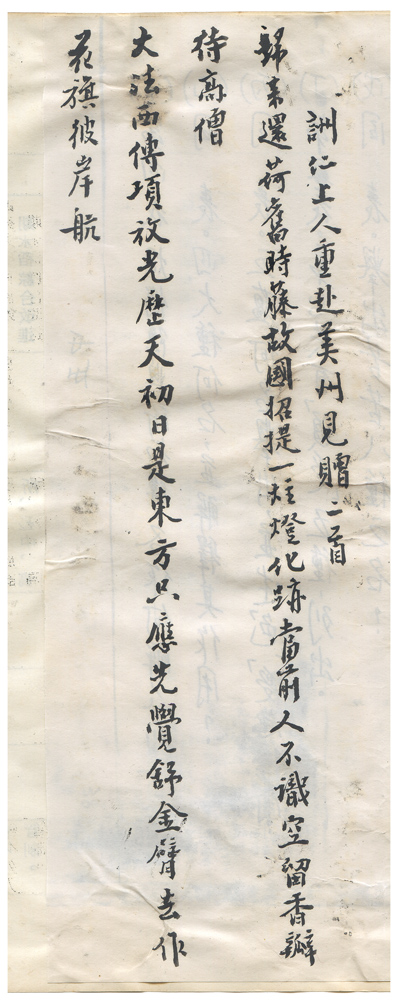 詶仁上人重赴美州見贈二首
歸来還荷舊時藤故國招提一炷燈化跡當前人不識空留香瓣
待高僧
大法西傳項放光歷天初日是東方只應先覺舒金臂去作
花旗彼岸航